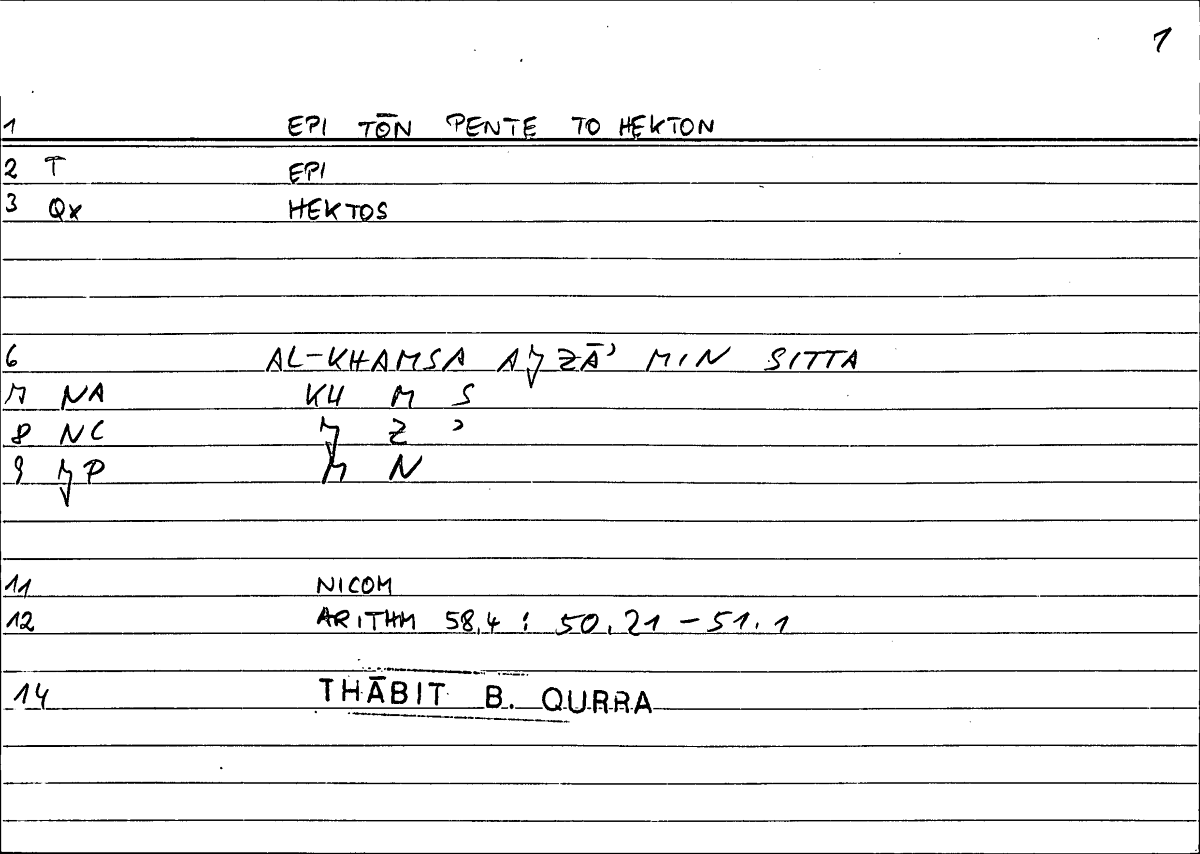 1
1 EPI TŌN PENTE TO HEKTON
2 T EPI
3 Qx HEKTOS
6 AL-KHAMSA AǦZĀʾ MIN SITTA
7 NA KH M S
8 NC Ǧ Z ʾ
9 ǦP M N
11 NICOM
12 ARITHM 58,4 : 50.21-51.1
14 THĀBIT B. QURRA